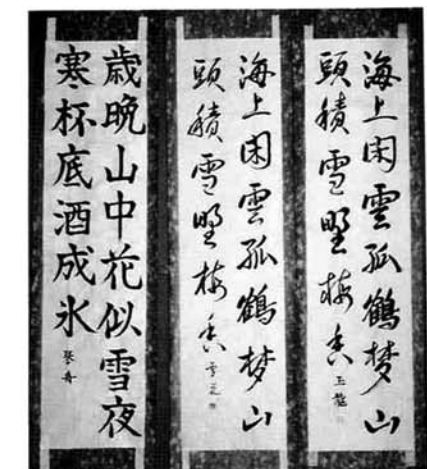 海上閑雲孤鶴梦山
頭積雪野梅香 玉龍
海上閑雲孤鶴梦山
頭積雪野梅香
歳晩山中花似雪夜
寒杯底酒成氷 琴舟